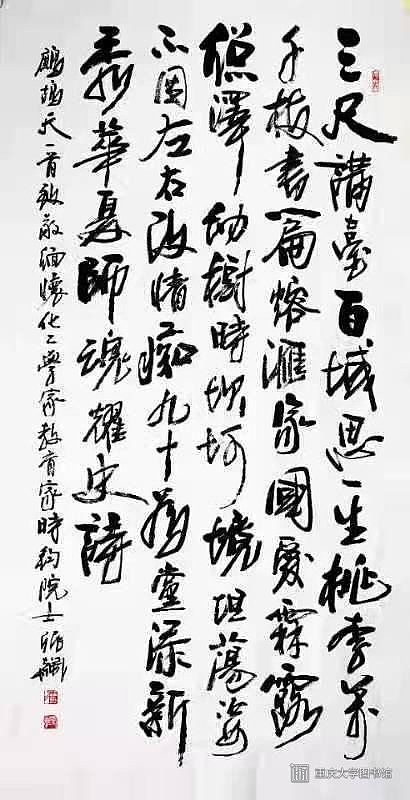 三尺講臺百域思一生桃李万
千枝書篇熔滙家國愛霖露
澤幼樹時坎坷境坦蕩姿
不因左右改情痴九十黨添新
華夏師魂耀史詩
鷓鴣天一首致敬緬懷化工學家教育家時鈞院士
重庆大学图书馆